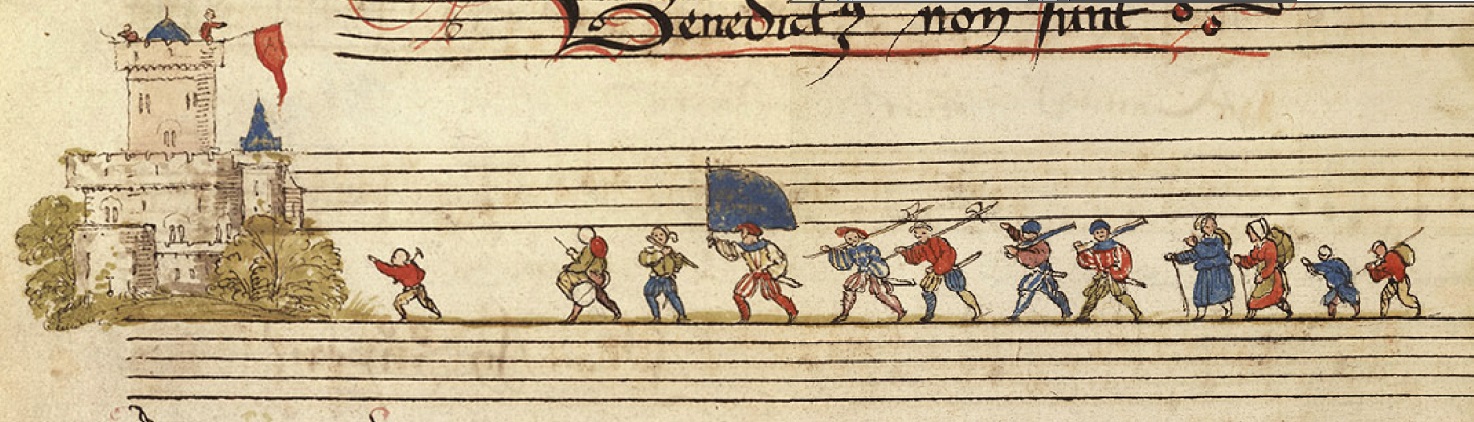 Benedictꝰ non sunt